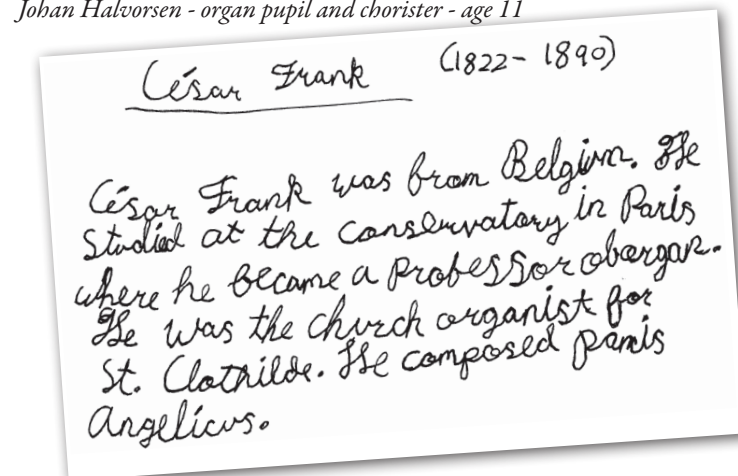 Johan Halvorsen - organ pupil and chorister - age 11
César Frank (1822 - 1890)
César Frank was from Belgium. He
studied at the conservatory in Paris
where he became a professor of organ.
He was the church organist for
St. Clothilde. He composed panis
Angelicus.